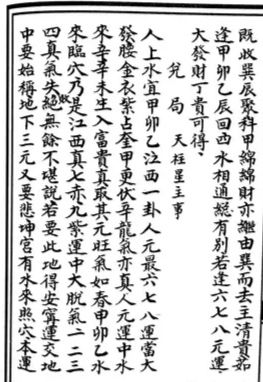 既收巽辰聚科甲綿綿財亦繼由巽而去主清貴如
逢甲卯乙辰回西水相通總有別若逢六七八元運
大發財丁貴可得
兌局 天柱星主事
人上水宜甲卯乙江西一卦人元最六七八運當大
發腰金衣紫占奎甲更伏辛龍氣亦真人元運中水
來辛辛未生入富貴真取其元旺氣如春甲卯乙水
來臨穴乃是江西真七赤九紫運中大脫氣一二三
四真氣失敗絕無餘不堪說若要此地得安寧運交地
中要始稱地下三元又要悲坤宮有水來照穴本運